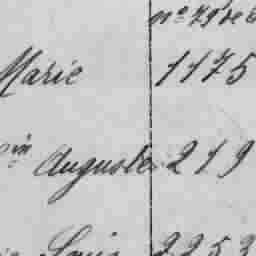 Marie 1175
in Auguste 219
Louis 2253